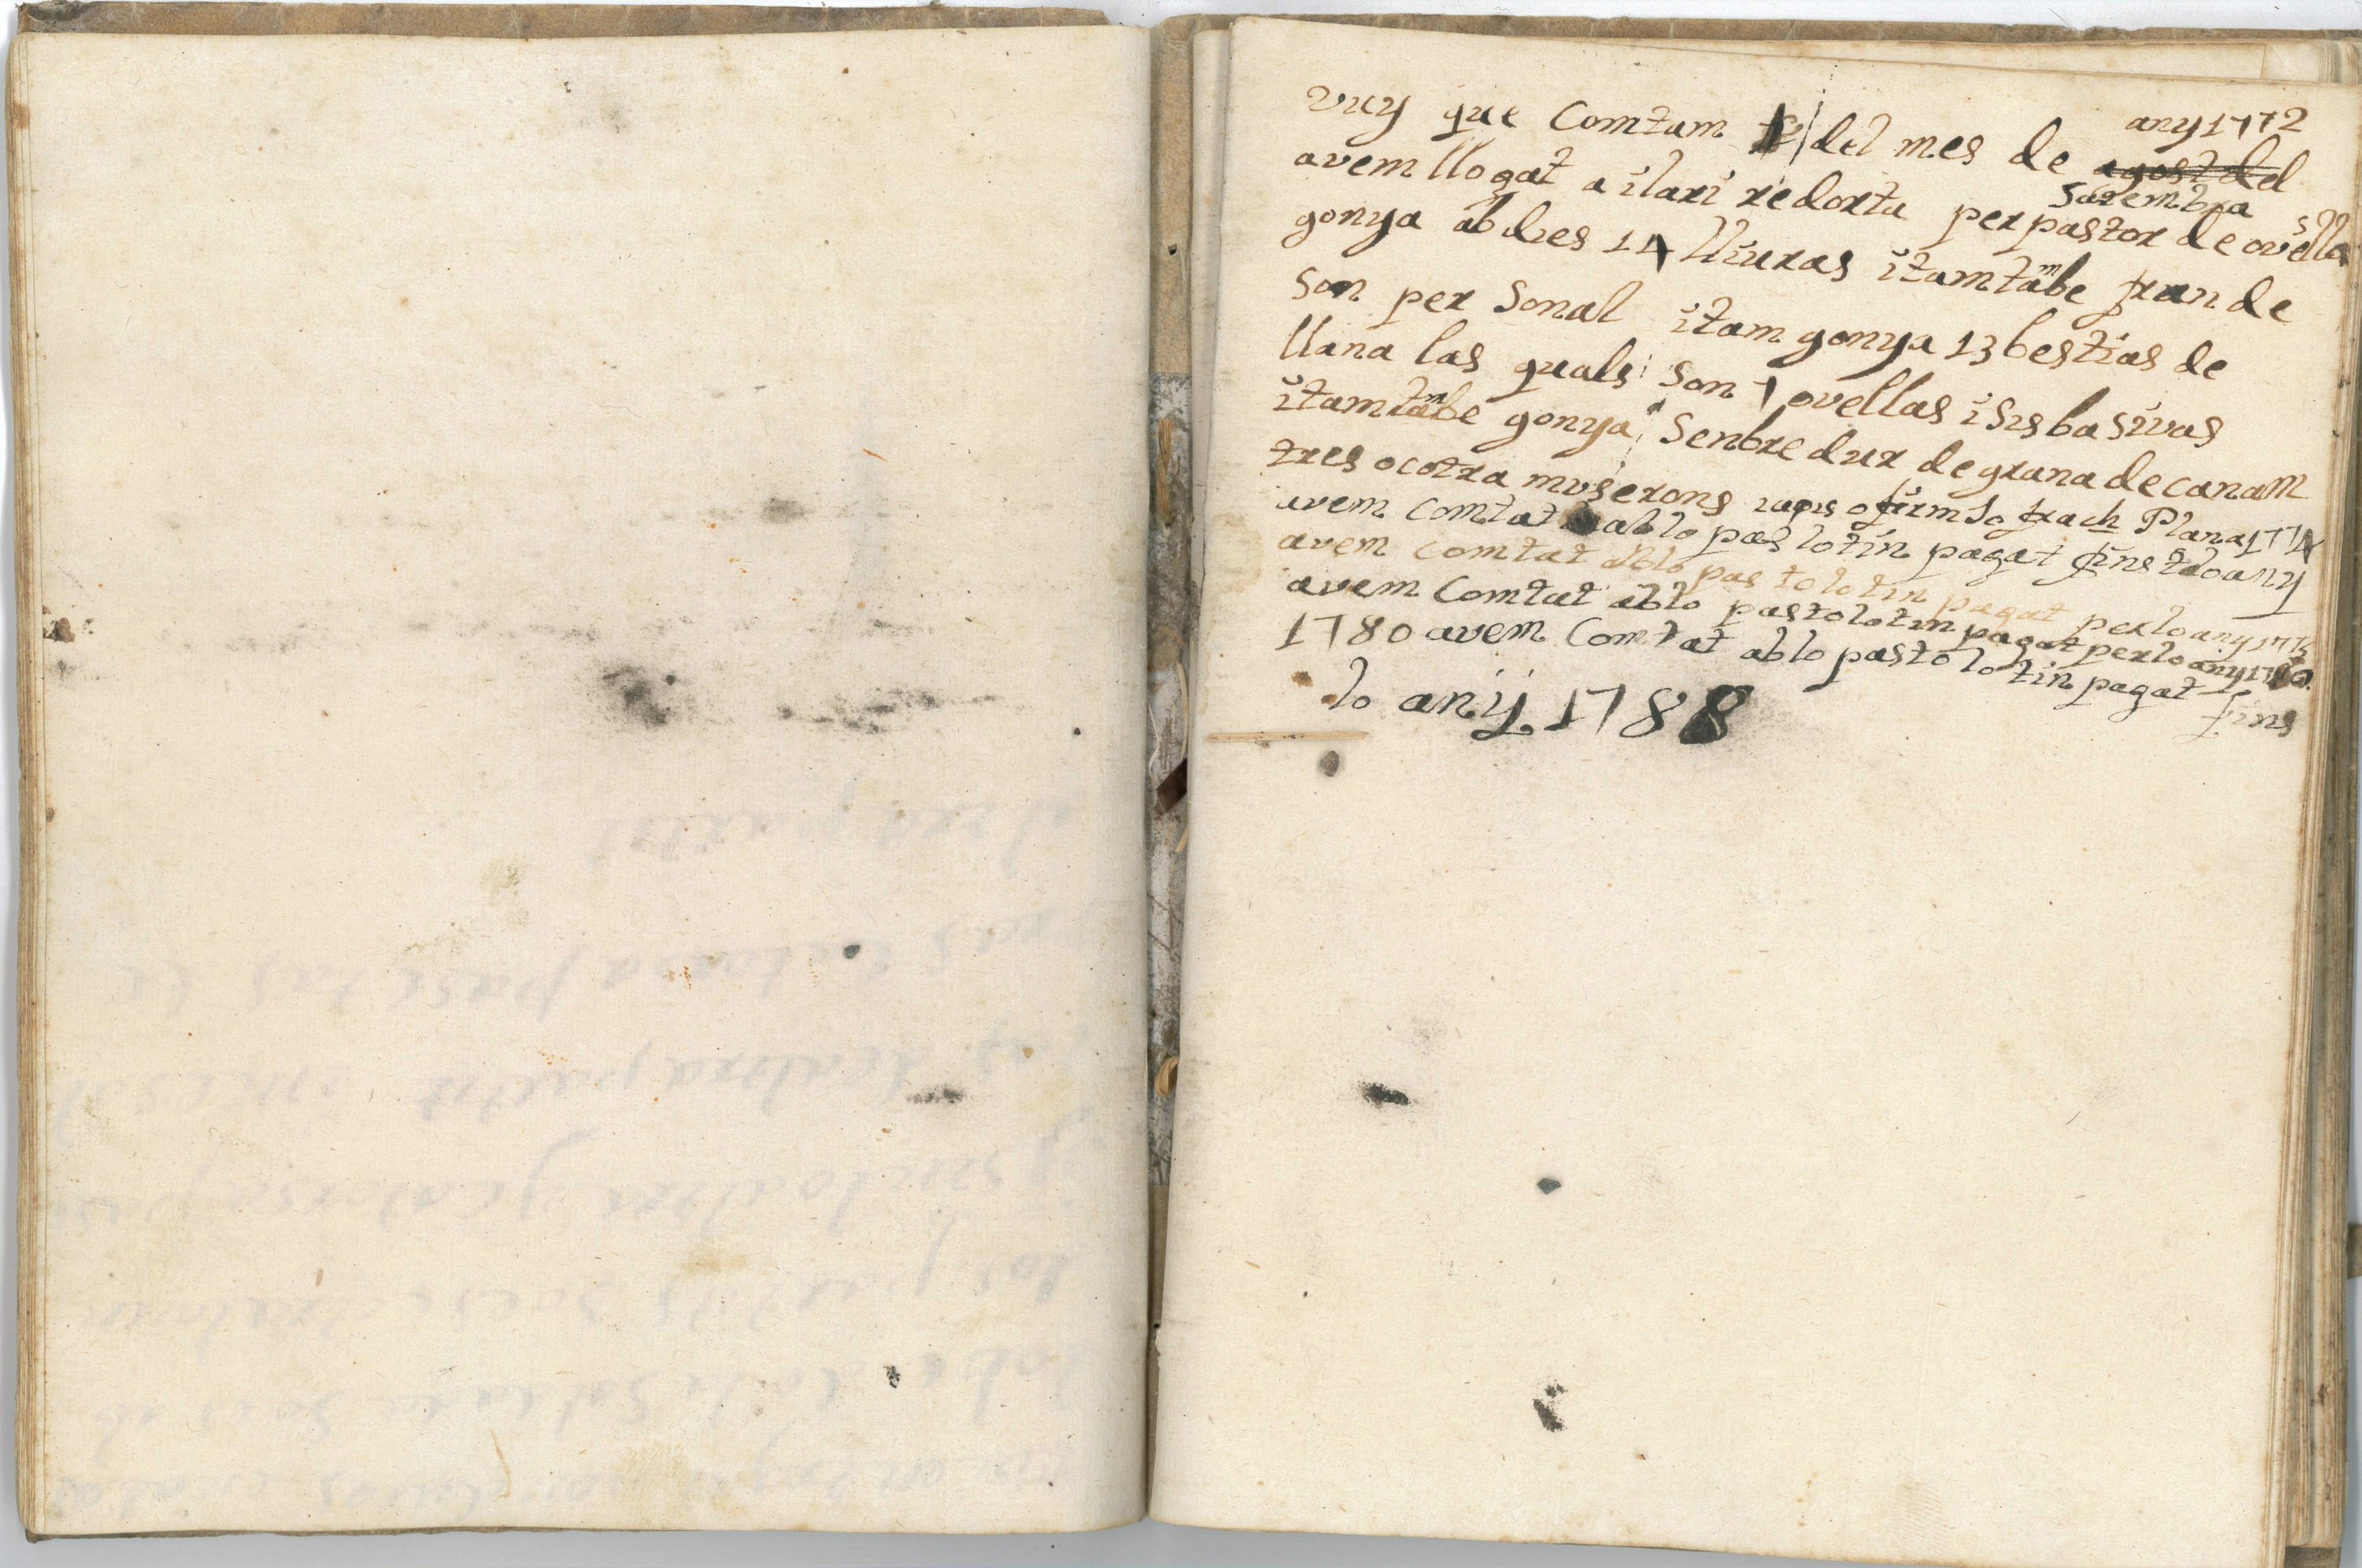 any 1772
vuy que Comtam del mes de agost del
Satembra
avem llogat a ilari redorta per pastor de ovellas
gonya ab dies 14 lliuras itam tambe fran de
son per Sonal itam gonya 13 bestias de
llana las quals son 7 ovellas i sis basivas
itam tambe gonya Senbredur de grana de canam
tres o cotra muserons ho firm Jo frach Plana 1774
avem Comtat ab lo pas lotin pagat fins t lo any
avem comtat ablo pas to lotin pagat per lo any 1775
avem Comtat ablo pasto lotin pagat per lo any 1780
1780 avem Comtat ablo pasto lo tin pagat fins
lo any 1788